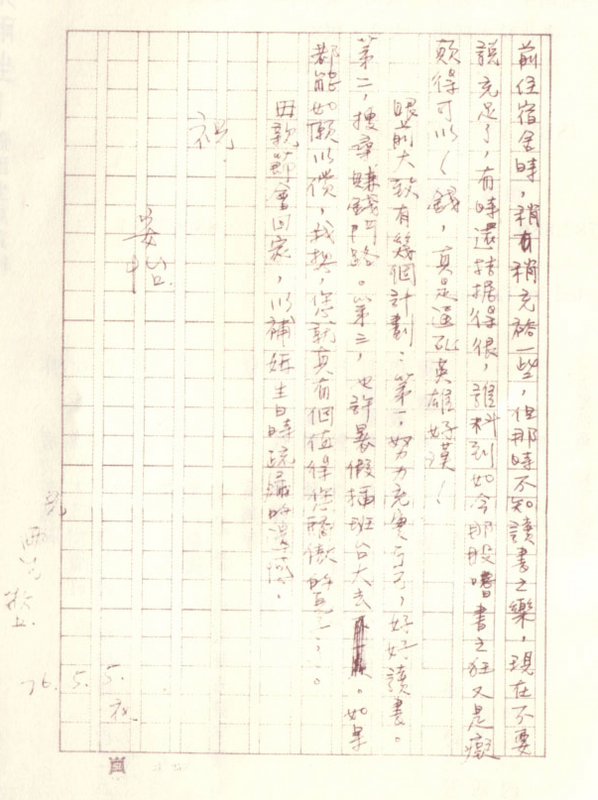 前住宿舍時，稍有稍充裕一些，但那時不知讀書之樂，現在不要
說充足了，有時還拮据得很，誰料到如今那股嗜書之狂又是癡
顛得可以！錢，真是逼死英雄好漢！
眼前大致有幾個計劃：第一，努力充實自己，好好讀書。
第二，搜尋賺錢門路。第三，也許暑假插班台大去。如果
都能如願以償，我想，您就真有個值得您驕傲的兒子。
母親節會回家，以補妳生日時疏漏的遺憾。
祝
安怡
兒
敬上
76.5.5.夜